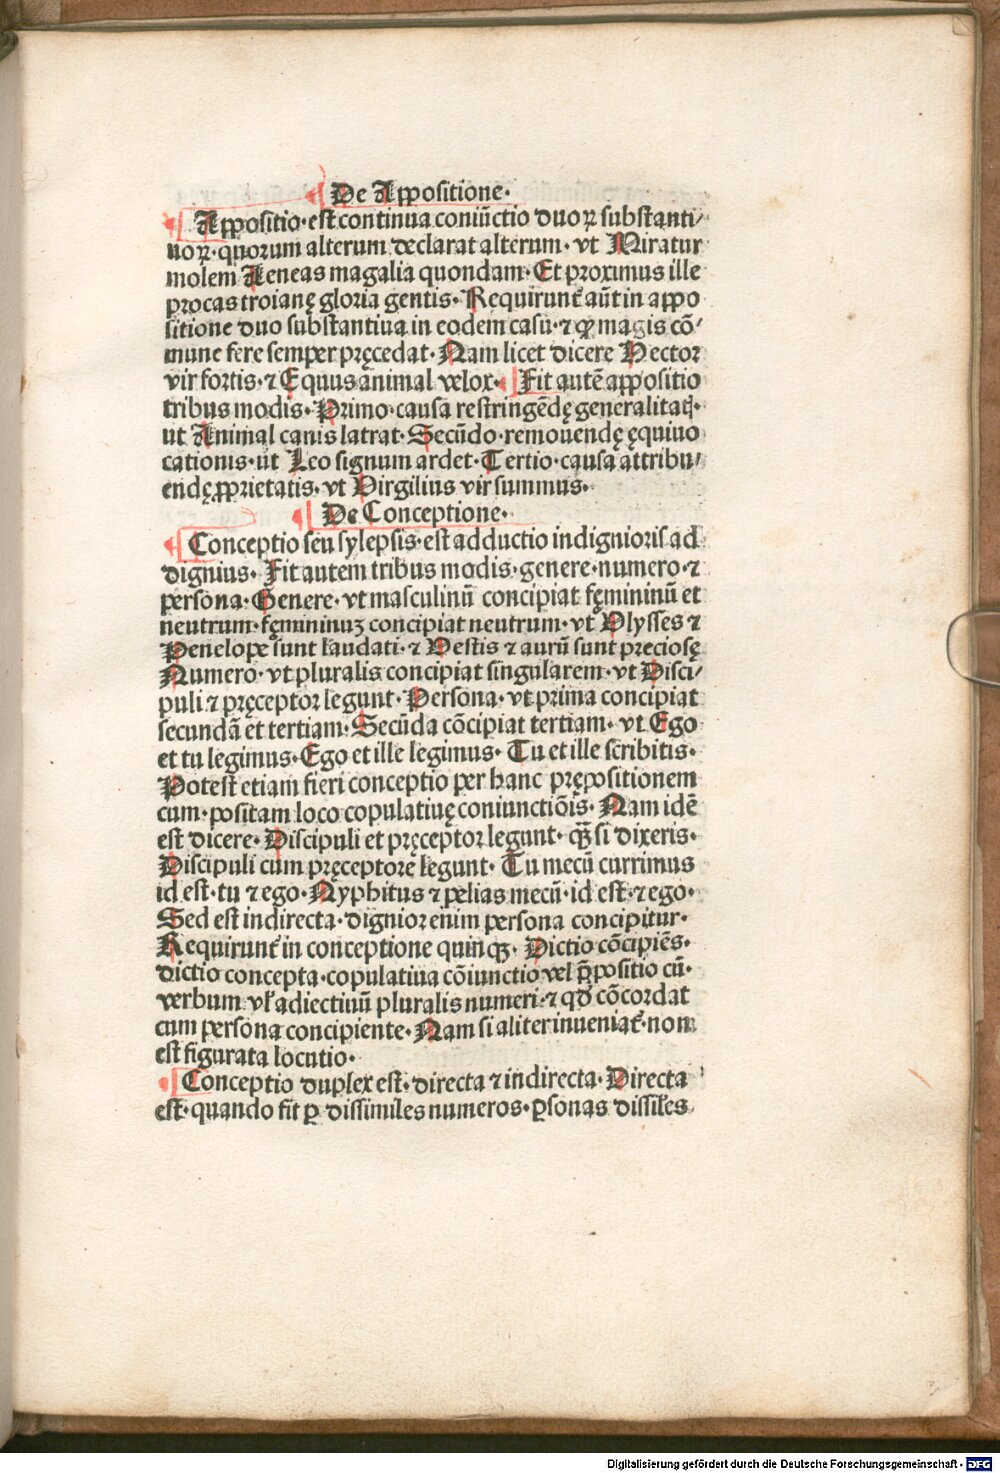 De Appositione·
Appositio·est continua coniūctio duoꝝ substanti⸗
uoꝝ·quorum alterum declarat alterum· vt Miratur
molem Aeneas magalia quondam· Et proximus ille
procas troianę gloria gentis· Requirunt᷑ aūt in appo
sitione duo substantiua in eodem casu·⁊ ꝙ magis cō⸗
mune fere semper pręcedat· Nam licet dicere Hector
vir fortis·⁊ Equus animal velox· Fit autē appositio
tribus modis· Primo·causa restringēdę generalitatꝭ·
ut Animal canis latrat· Secūdo·remouendę ęquiuo
cationis·ut Leo signum ardet· Tertio·causa attribu⸗
endę ꝓprietatis· vt Virgilius vir summus·
De Conceptione·
Conceptio seu sylepsis·est adductio indignioris ad
dignius· Fit autem tribus modis·genere·numero·⁊
persona· Genere· vt masculinū concipiat fęmininū et
neutrum·fęmininuꝫ concipiat neutrum· vt Vlysses ⁊
Penelope sunt laudati·⁊ Vestis ⁊ aurū sunt preciosę
Numero· vt pluralis concipiat singularem· vt Disci⸗
puli ⁊ pręceptor legunt· Persona· vt prima concipiat
secundā et tertiam· Secūda cōcipiat tertiam· vt Ego
et tu legimus· Ego et ille legimus· Tu et ille scribitis·
Potest etiam fieri conceptio per hanc prępositionem
cum·positam loco copulatiuę coniunctiōis· Nam idē
est dicere· Discipuli et pręceptor legunt· qꝫ̄ si dixeris·
Discipuli cum pręceptore legunt· Tu mecū currimus
id est·tu ⁊ ego· Nyphitus ⁊ pelias mecū·id est·⁊ ego·
Sed est indirecta·dignior enim persona concipitur·
Requirunt᷑ in conceptione quinqꝫ· Dictio cōcipiēs·
dictio concepta·copulatiua cōiunctio vel p̄positio cū·
verbum vl̓ adiectiuū pluralis numeri·⁊ qđ cōcordat
cum persona concipiente· Nam si aliter inueniat᷑·non
est figurata locutio·
Conceptio duplex est·directa ⁊ indirecta· Directa
est·quando fit ꝑ dissimiles numeros·ꝑsonas dissil̓es
Digitalisierung gefördert durch die Deutsche Forschungsgemeinschaft - DFG